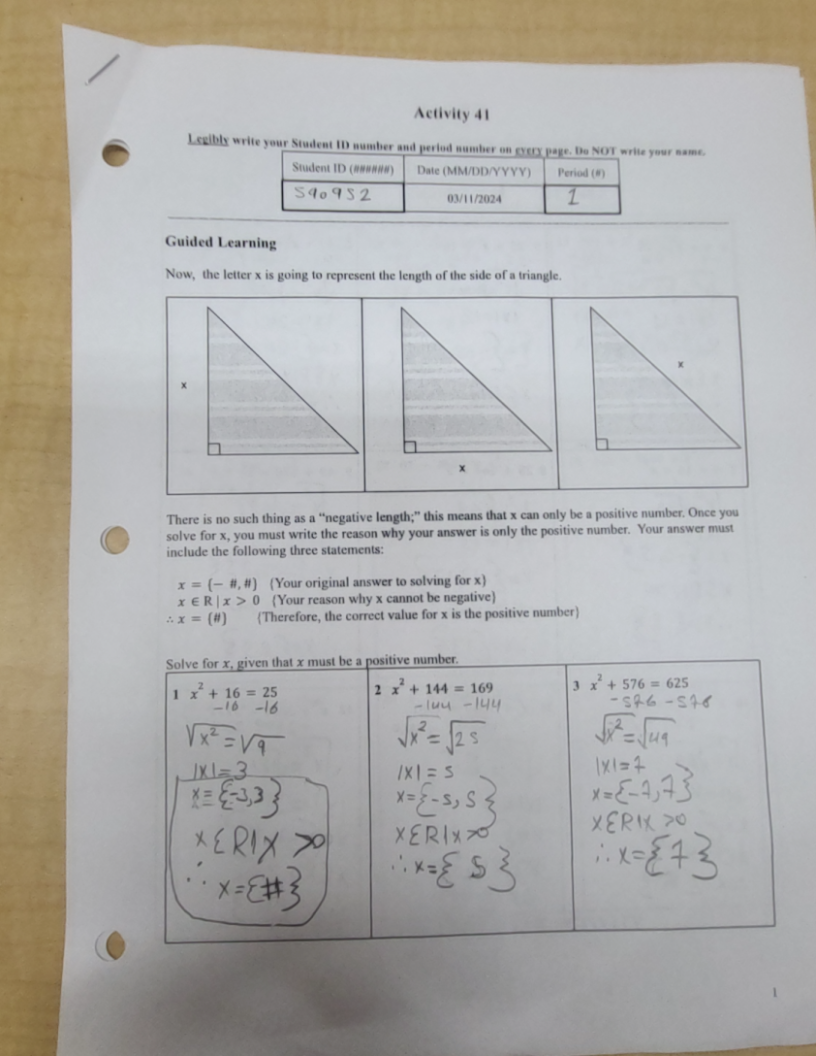 Activity 41
Legibly write your Student ID number and period number on every page. Do NOT write your name.
Student ID (######) Date (MM/DD/YYYY) Period (#)
590952 03/11/2024 1
Guided Learning
Now, the letter x is going to represent the length of the side of a triangle.
x
x
x
There is no such thing as a “negative length;” this means that x can only be a positive number. Once you
solve for x, you must write the reason why your answer is only the positive number. Your answer must
include the following three statements:
x = {− #, #} {Your original answer to solving for x}
x ∈ R | x > 0 {Your reason why x cannot be negative}
∴ x = {#} {Therefore, the correct value for x is the positive number}
Solve for x, given that x must be a positive number.
1 x² + 16 = 25
-16 -16
√x² = √9
|x| = 3
x = {-3,3}
x ∈ R | x > 0
∴ x = {#}
2 x² + 144 = 169
-144 -144
√x² = √25
|x| = 5
x = {-5, 5}
x ∈ R | x > 0
∴ x = {5}
3 x² + 576 = 625
-576 -576
√x² = √49
|x| = 7
x = {-7, 7}
x ∈ R | x > 0
∴ x = {7}
1